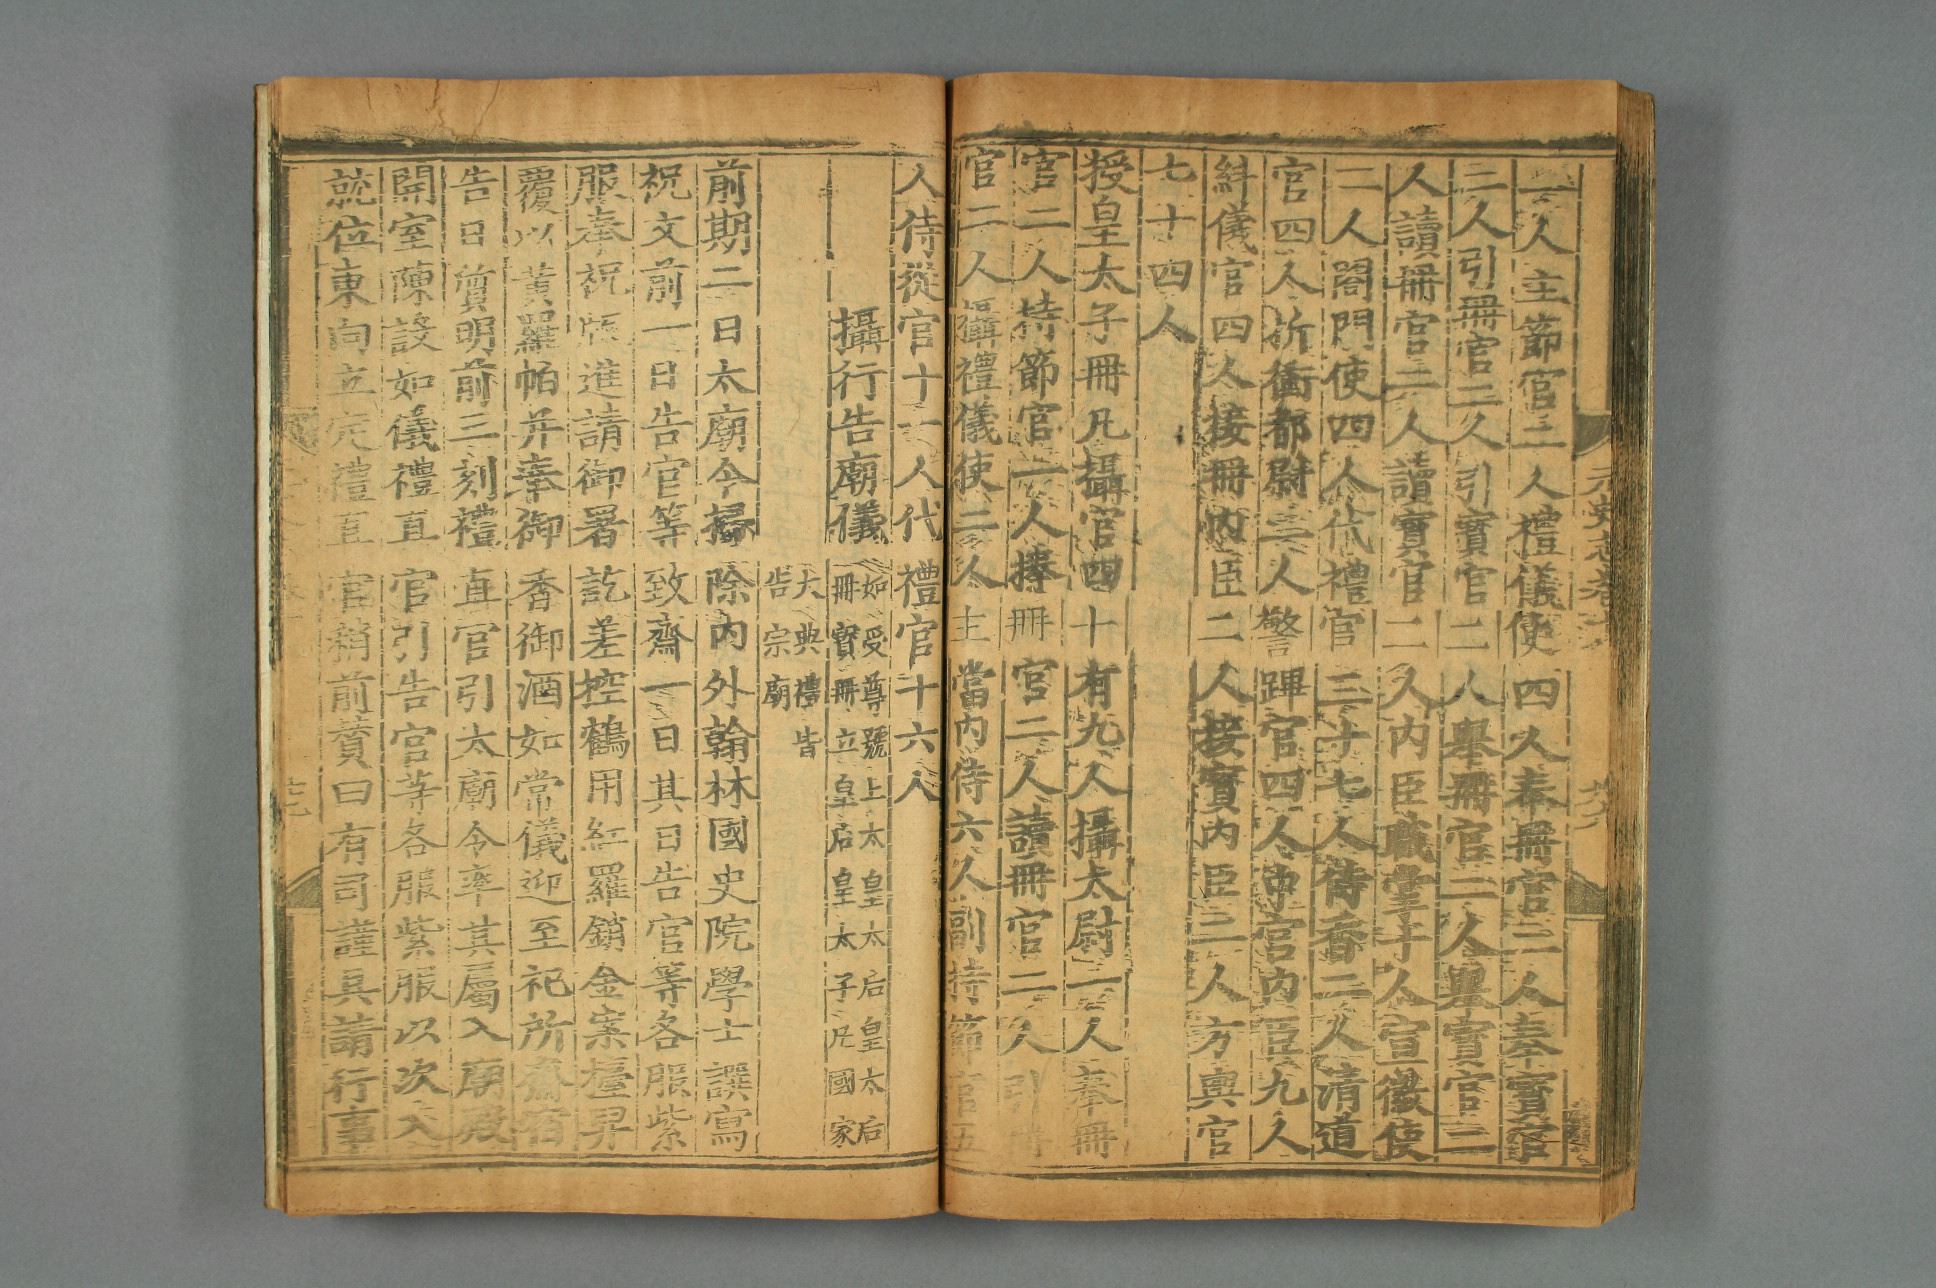 二人主節官二人禮儀使四人奉冊官二人奉寶官
二人引冊官二人引寶官二人舉冊官二人舉寶官二
人讀冊官二人讀寶官二人內臣職掌十人宣徽使
二人閤門使四人代禮官三十七人侍香二人清道
官四人折衝都尉二人警蹕官四人中官內臣九人
糾儀官四人接冊內臣二人接寶內臣二人方輿官
七十四人
授皇太子冊凡攝官四十有九人攝太尉一人奉冊
官二人持節官一人捧冊官二人讀冊官二人引冊
官二人攝禮儀使二人主當內侍六人副持節官五
人侍從官十一人代禮官十六人
攝行告廟儀
如受尊號上太皇太后皇太后
冊寶冊立皇后皇太子凡國家
大典禮皆
告宗廟
前期二日太廟令掃除內外翰林國史院學士譔寫
祝文前一日告官等致齋一日其日告官等各服紫
服奉祝版進請御署訖差控鶴用紅羅銷金案擡舁
覆以黃羅帕并奉御香御酒如常儀迎至祀所齋宿
告日質明前三刻禮直官引太廟令率其屬入廟殿
開室陳設如儀禮直官引告官等各服紫服以次入
就位東向立定禮直官稍前贊曰有司謹具請行事
元史志卷